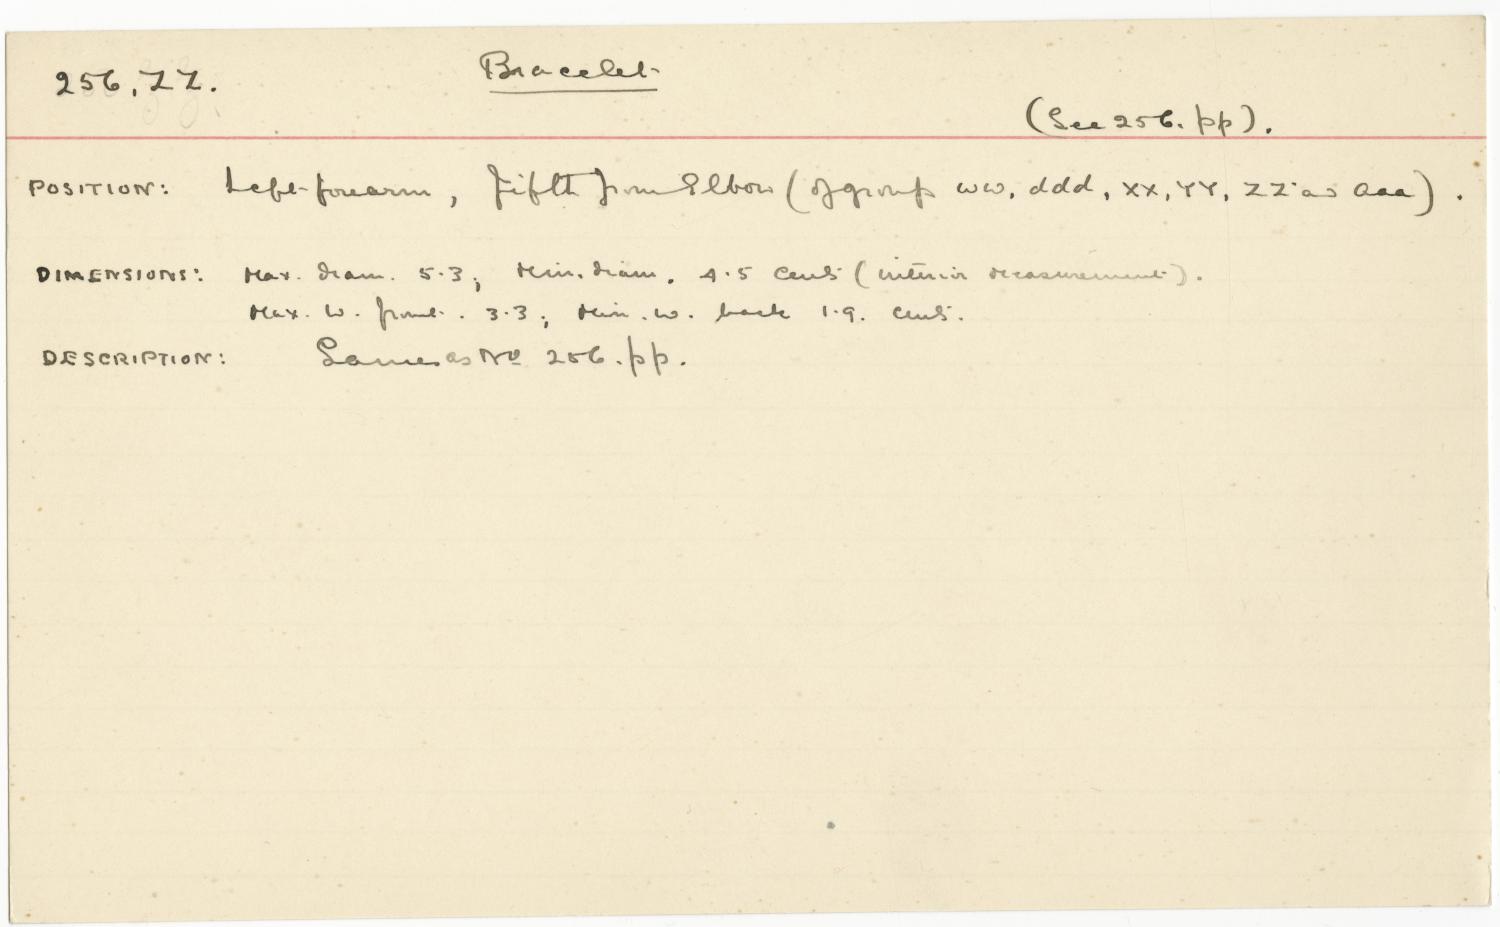 256, ZZ.
Bracelet
(See 256. pp).
POSITION: Left forearm, fifth from Elbow (of group ww, ddd, XX, YY, ZZ and aaa).
DIMENSIONS: Max. diam. 5.3; Min. diam. 4.5 cents (interior measurement).
Max. w. front. 3.3; Min. w. back 1.9. cents.
DESCRIPTION: Same as No 256. pp.